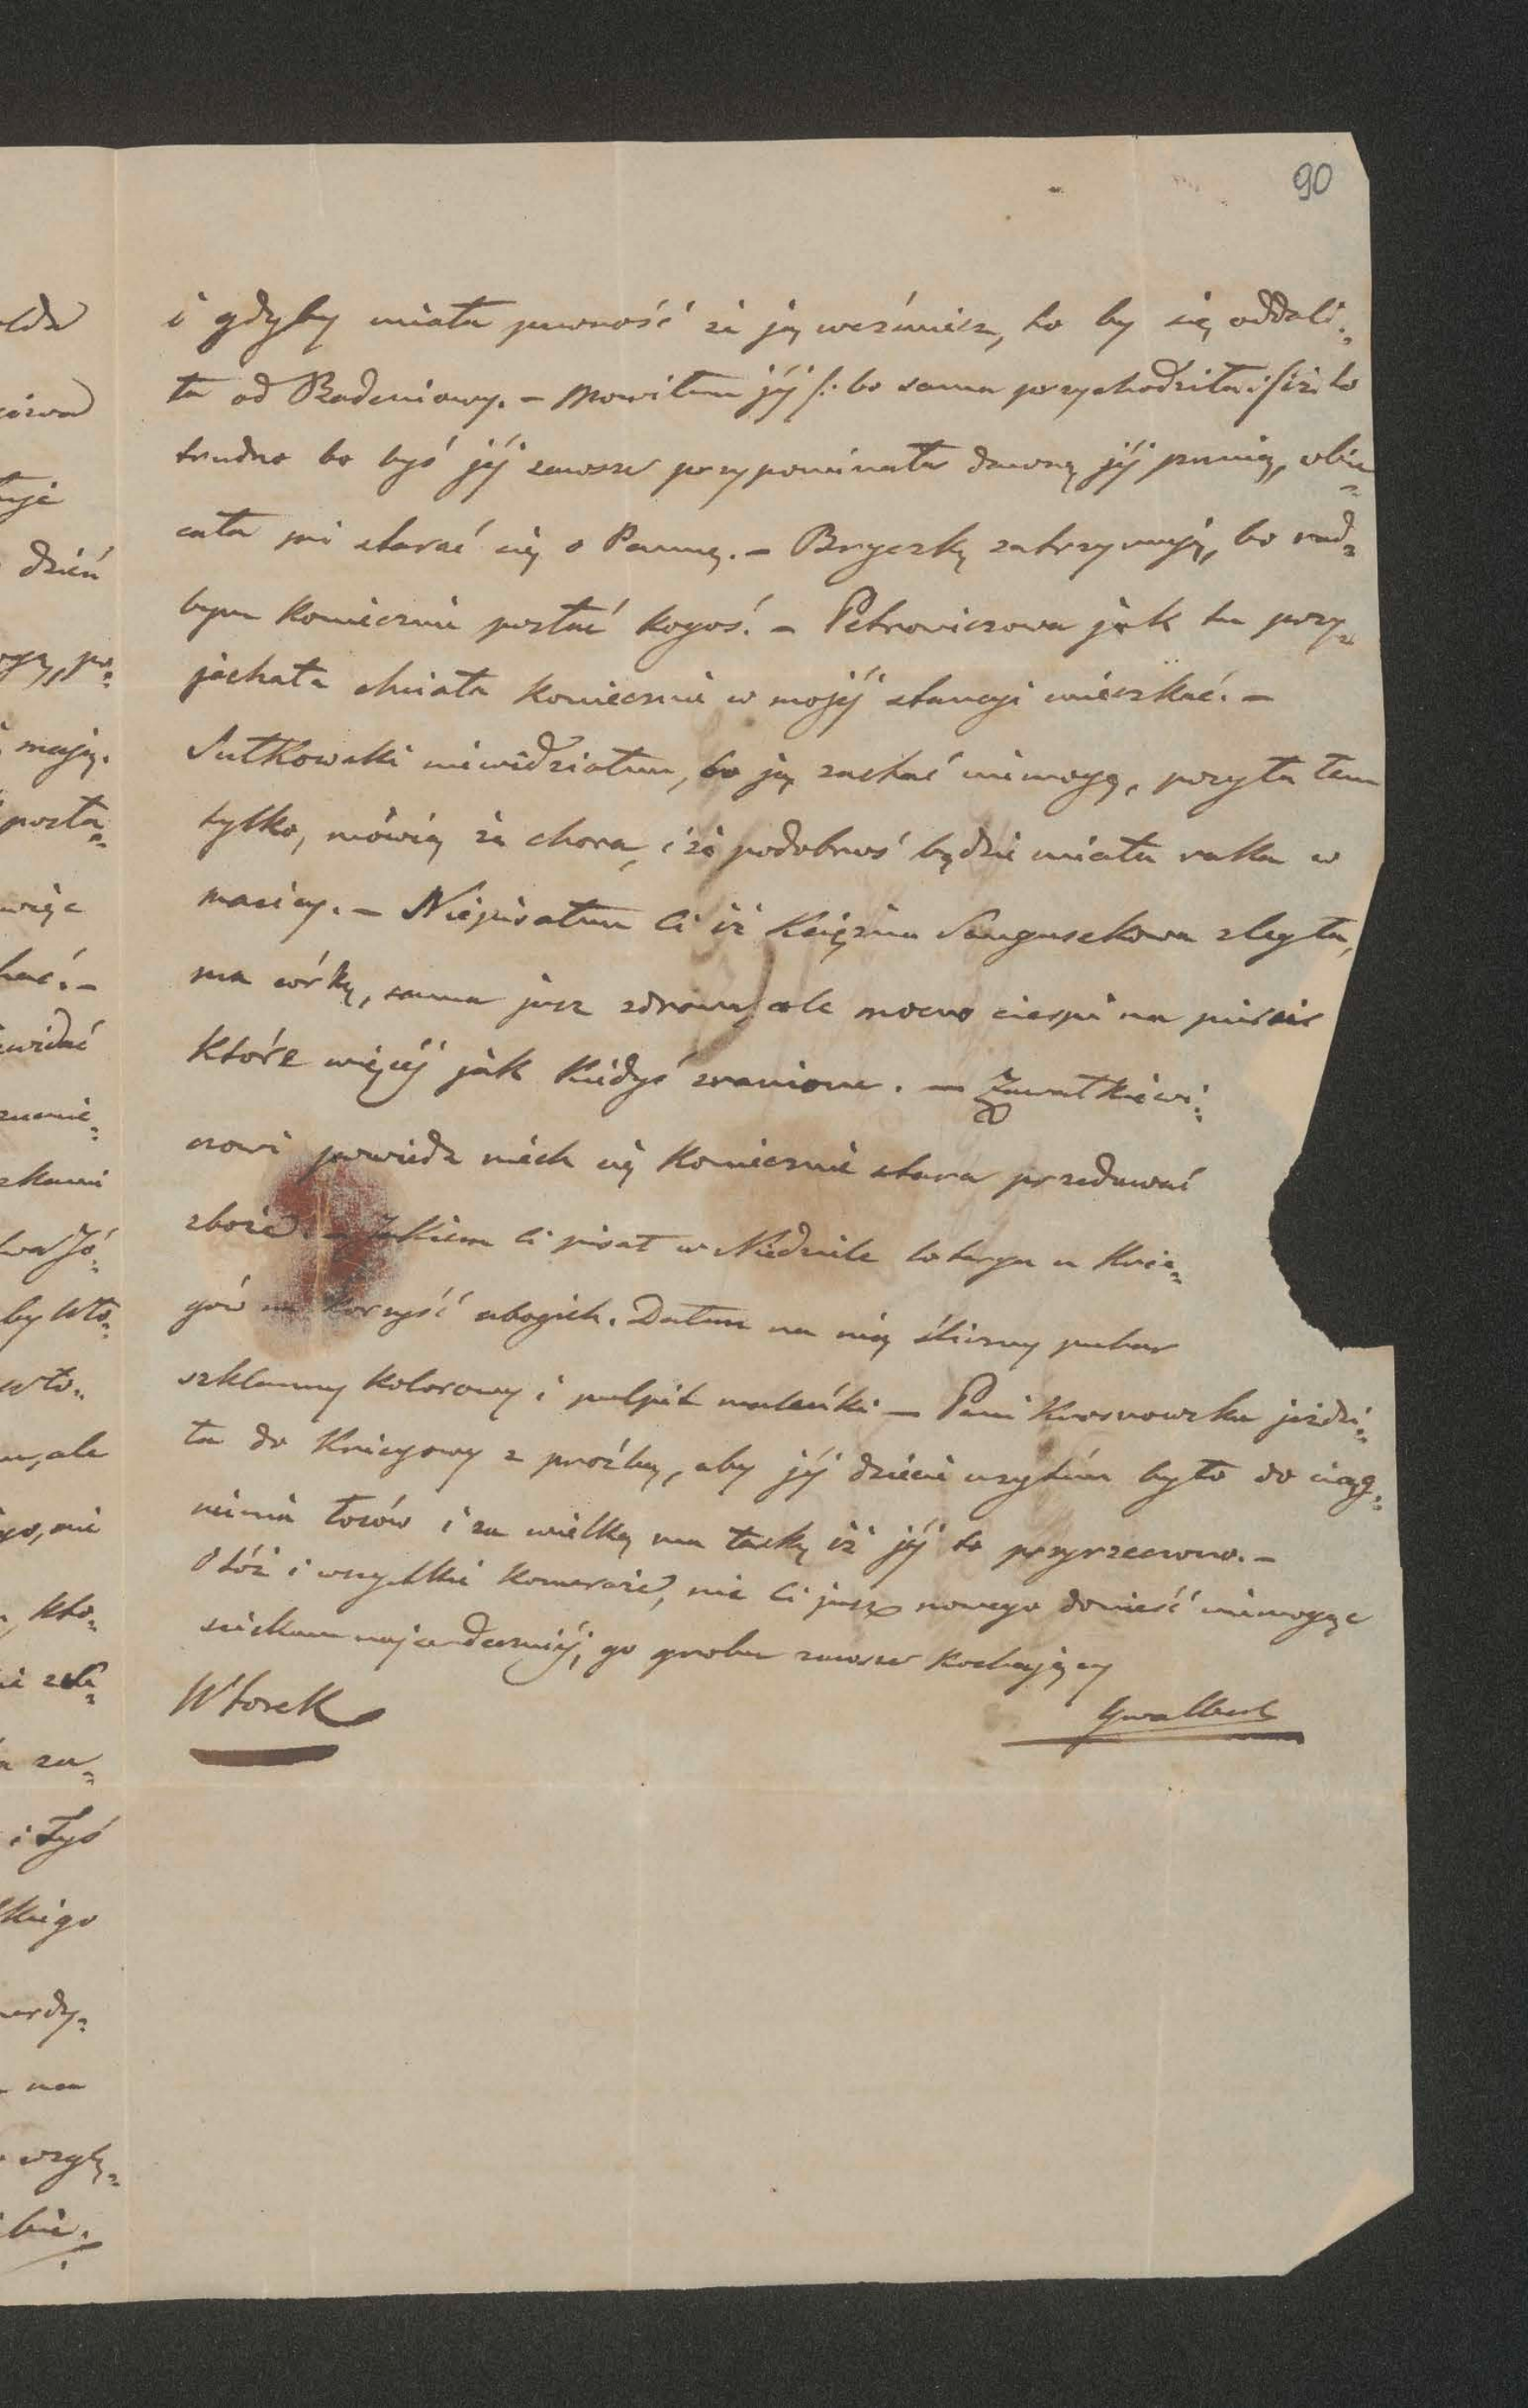 90
i gdyby miała pewność że ją weźmiesz, to by się oddali„
ła od Badeniowy. – Mowiłem jéj /: bo sama przychodziła :/ iż to
trudno bo byś jéj zawsze przypominała dawną jéj panią, obie„
cała mi starać się o Pannę. – Bryczkę zatrzymuję, bo rad„
bym koniecznie posłać kogoś. – Petrowiczowa jak tu przy„
jachała chciała koniecznie w mojéj stancyi mieszkać. –
Sutkowski niewidziałem, bo ją zastać niemogę, pozytałem
tylko, mówią że chora, i że podobnoś będzie miała raka w
macicy. – Niepisałem Ci iż Xiężna Sanguszkowa zległa,
ma córkę, sama jusz zdrowa, ale mocno cierpi na piersie
które więcéj jak kiedyś zranione. – Zawałkiewi„
czowi powiedz niech się koniecznie stara przedawać
zboże. – Jakiem Ci pisał w Niedziele loterya u Krie„
gów na korzyść ubogich. Dałem na nią śliczny puhar
szklanny kolorowy i pulpit maleńki – Pani Krosnowska jeździ„
ła do Kriegowy z proźbą, aby jéj dziecie użytém było do ciąg„
nienia losów i za wielką ma łaskę iż jéj to przyrzeczono. –
Otóż i wszystkie komeraże, nic Ci jusz nowego donieść niemogąc
sciskam najserdeczniéj, po grobu zawsze kochający
Wtorek
Gwalbert
olda
dzień
mają.
posta„
więc
hać. –
zkami
by Wło„
i Tyś
kiego
na